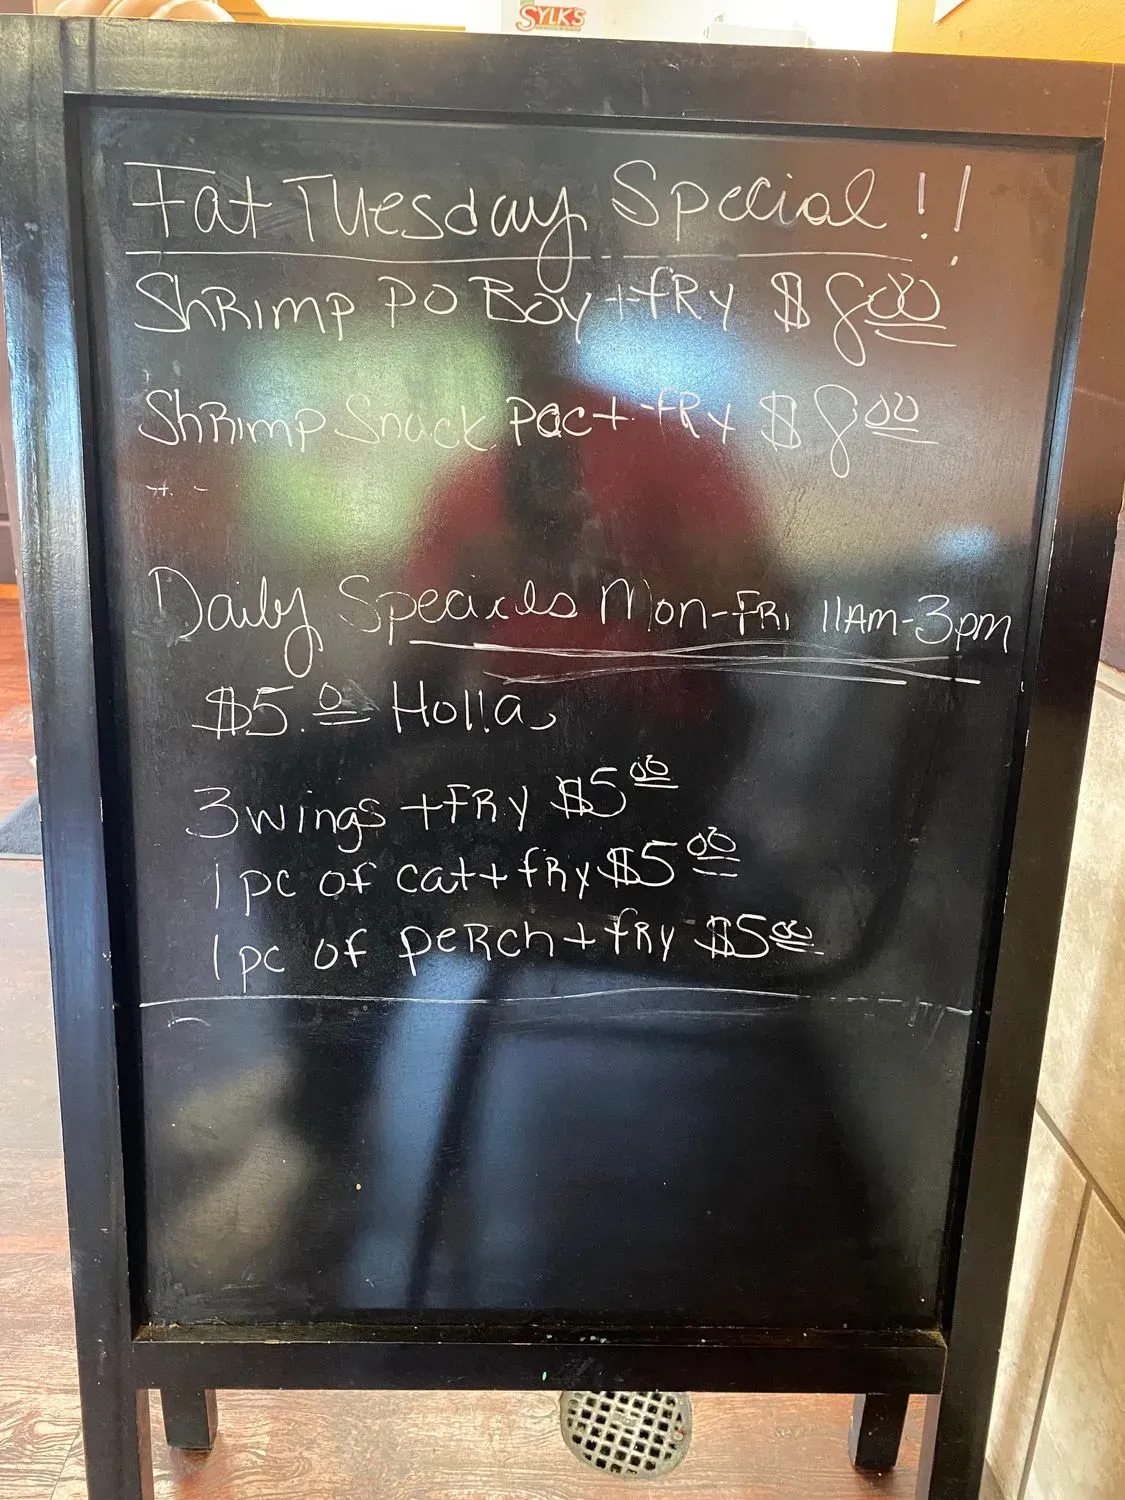 SYLKS
Fat Tuesday Special!!
ShRimp PO BOY + fRY $8.00
ShRimp Snack Pac + fRY $8.00
Daily Speciels Mon-FRi 11AM-3pm
$5.0 Holla
3 wings + FRY $5.00
1 pc of cat + fRy $5.00
1 pc of peRch + fRY $5.00